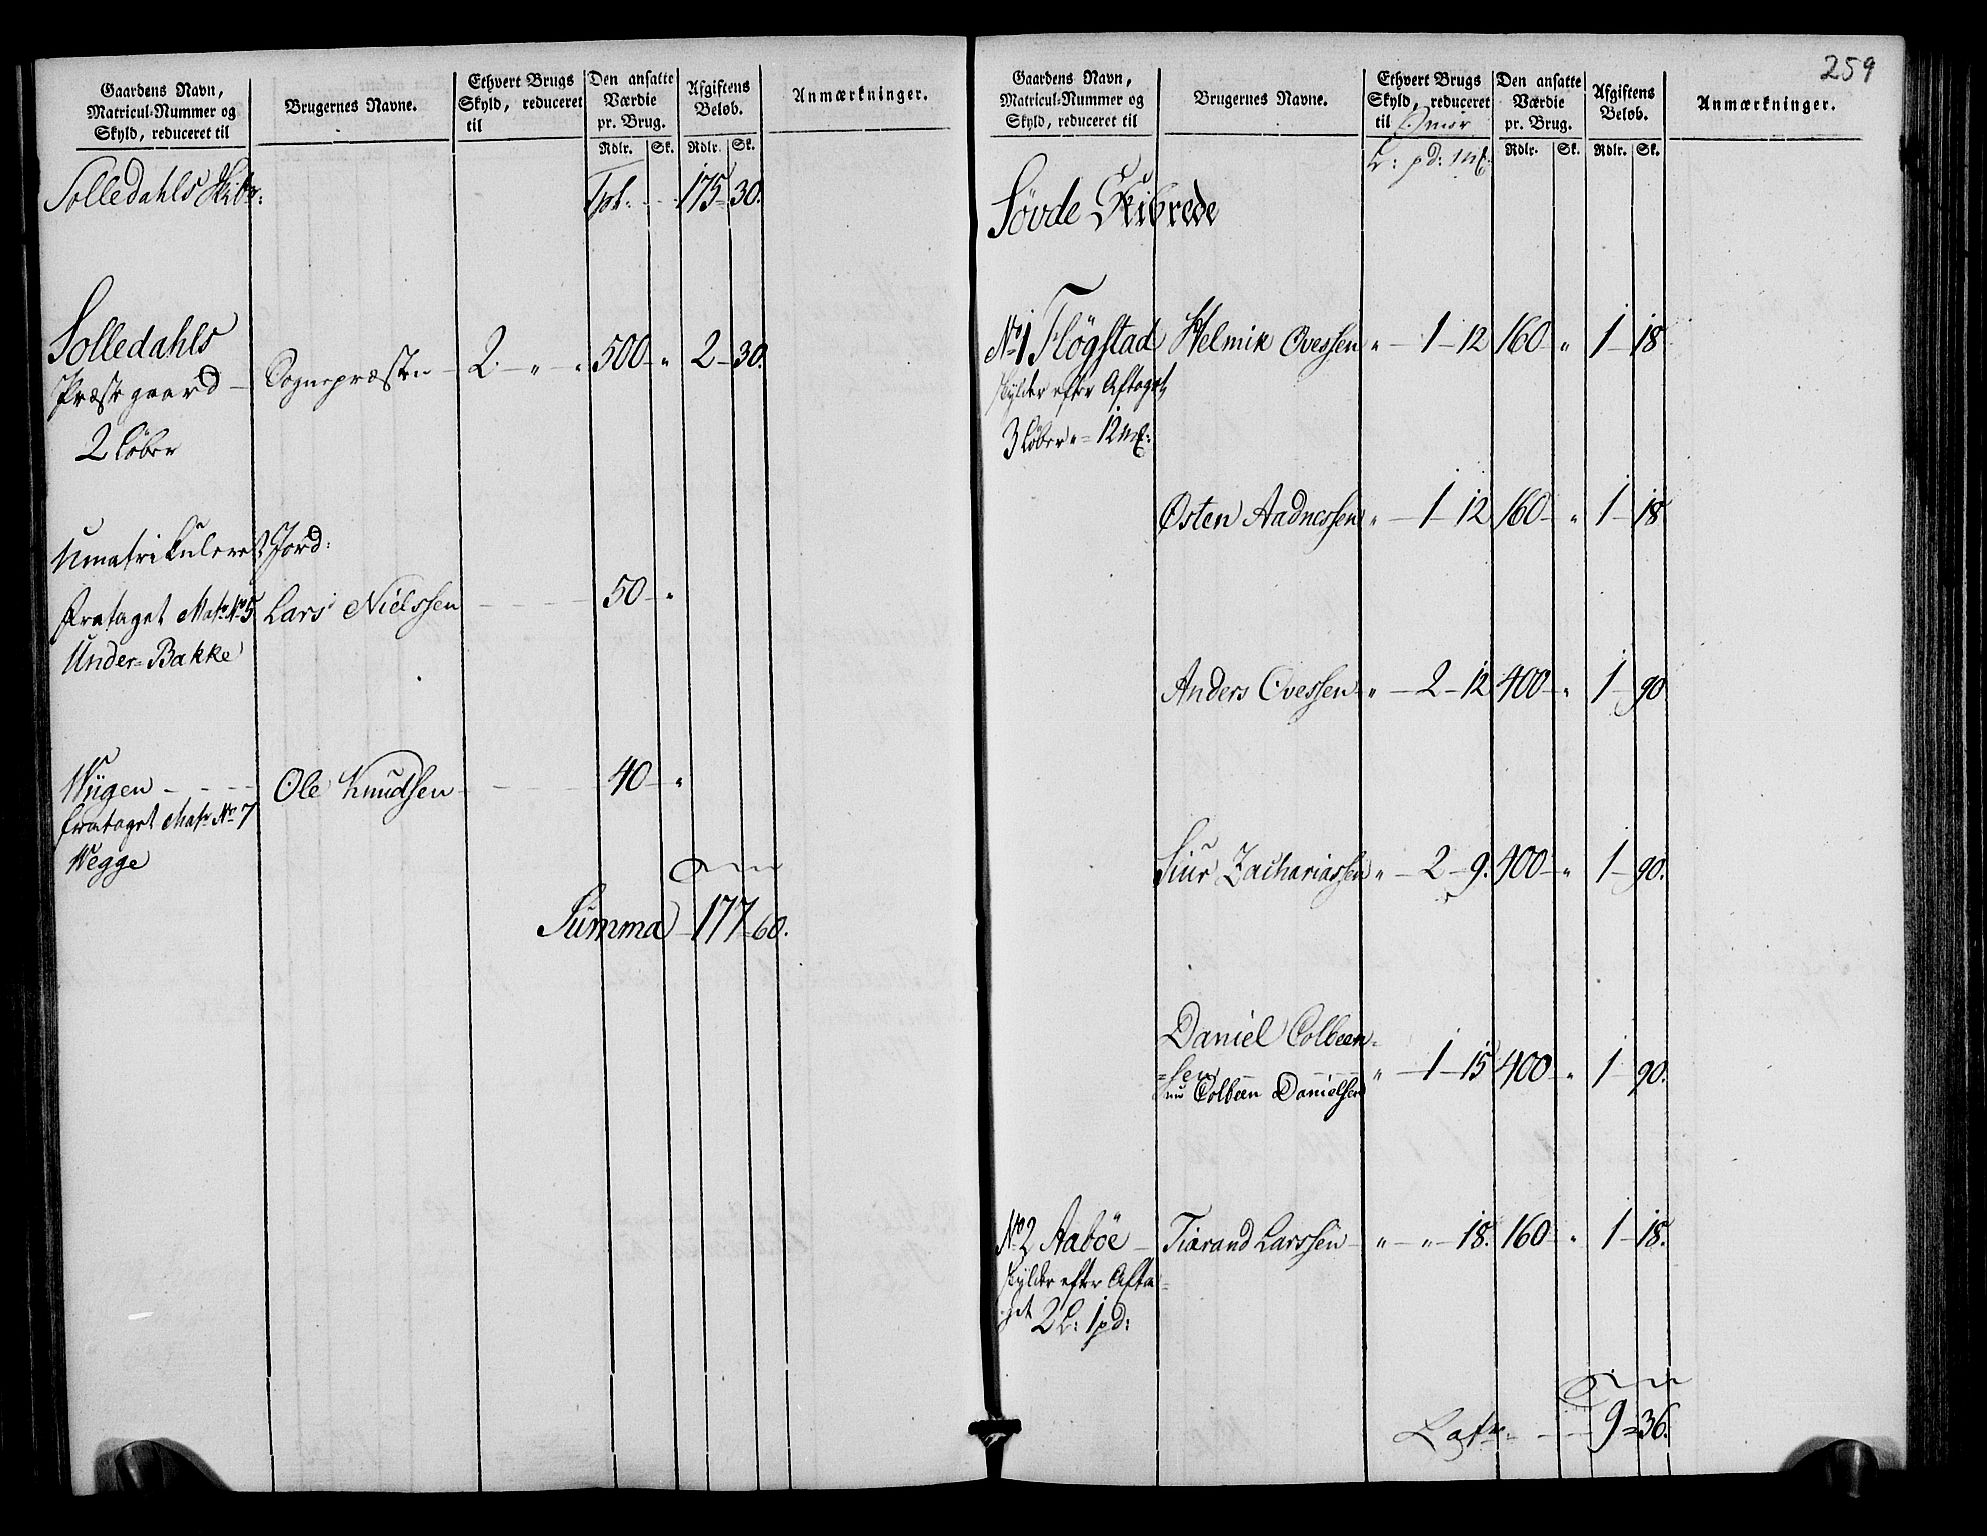 Gaardens Navn, Matricul-Nummer og Skyld, reduceret til | Brugernes Navne. | Ethvert Brugs Skyld, reduceret til | Den ansatte Værdie pr. Brug. | Afgiftens Beløb. | Anmærkninger.
Rdlr. Sk. Rdlr. Sk.
Solledahls Skibr: Tpt. 175 30.
Solledahls
Præstegaard Sognepræsten 2 " " 500 " 2 30.
2 Løber
Umatrikuleret Jord:
frataget Matr No 5 Lars Nielssen 50 "
Under-Bakke
Wiigen Ole Knudsen 40 "
frataget Matr No 7
Wegge
Summa 177 60.
259
Gaardens Navn, Matricul-Nummer og Skyld, reduceret til | Brugernes Navne. | Ethvert Brugs Skyld, reduceret til Smør | Den ansatte Værdie pr. Brug. | Afgiftens Beløb. | Anmærkninger.
L: pd: mk. Rdlr. Sk. Rdlr. Sk.
Søvde Skibrede
No 1 Fløgstad Helmik Ovessen " 1 12 160 " 1 18
skylder efter Aftaget
3 Løber " 12 mk:
Østen Aadnessen " 1 12 160 " 1 18
Anders Ovessen " 2 12 400 " 1 90
Siur Zachariassen " 2 9. 400 " 1 90.
Daniel Colbeen-
=sen " 1 15 400 " 1 90.
nu Colbeen Danielsen
No 2 Aabøe Tiærand Larssen " " 18. 160 " 1 18.
skylder efter Afta-
get 2 L: 1 pd:
Latr. 9 36.